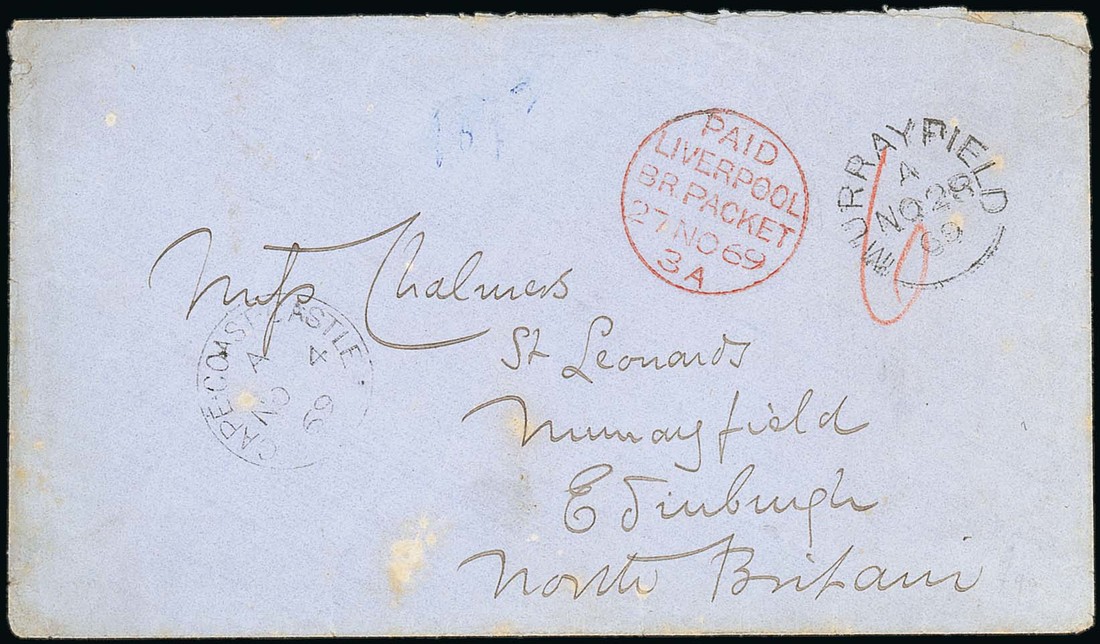 PAID
LIVERPOOL
BR. PACKET
27 NO 69
3 A
MURRAYFIELD
A
NO 29
69
6
Miss Chalmers
CAPE-COAST-CASTLE
A
NO 4
69
St Leonards
Murrayfield
Edinburgh
North Britain